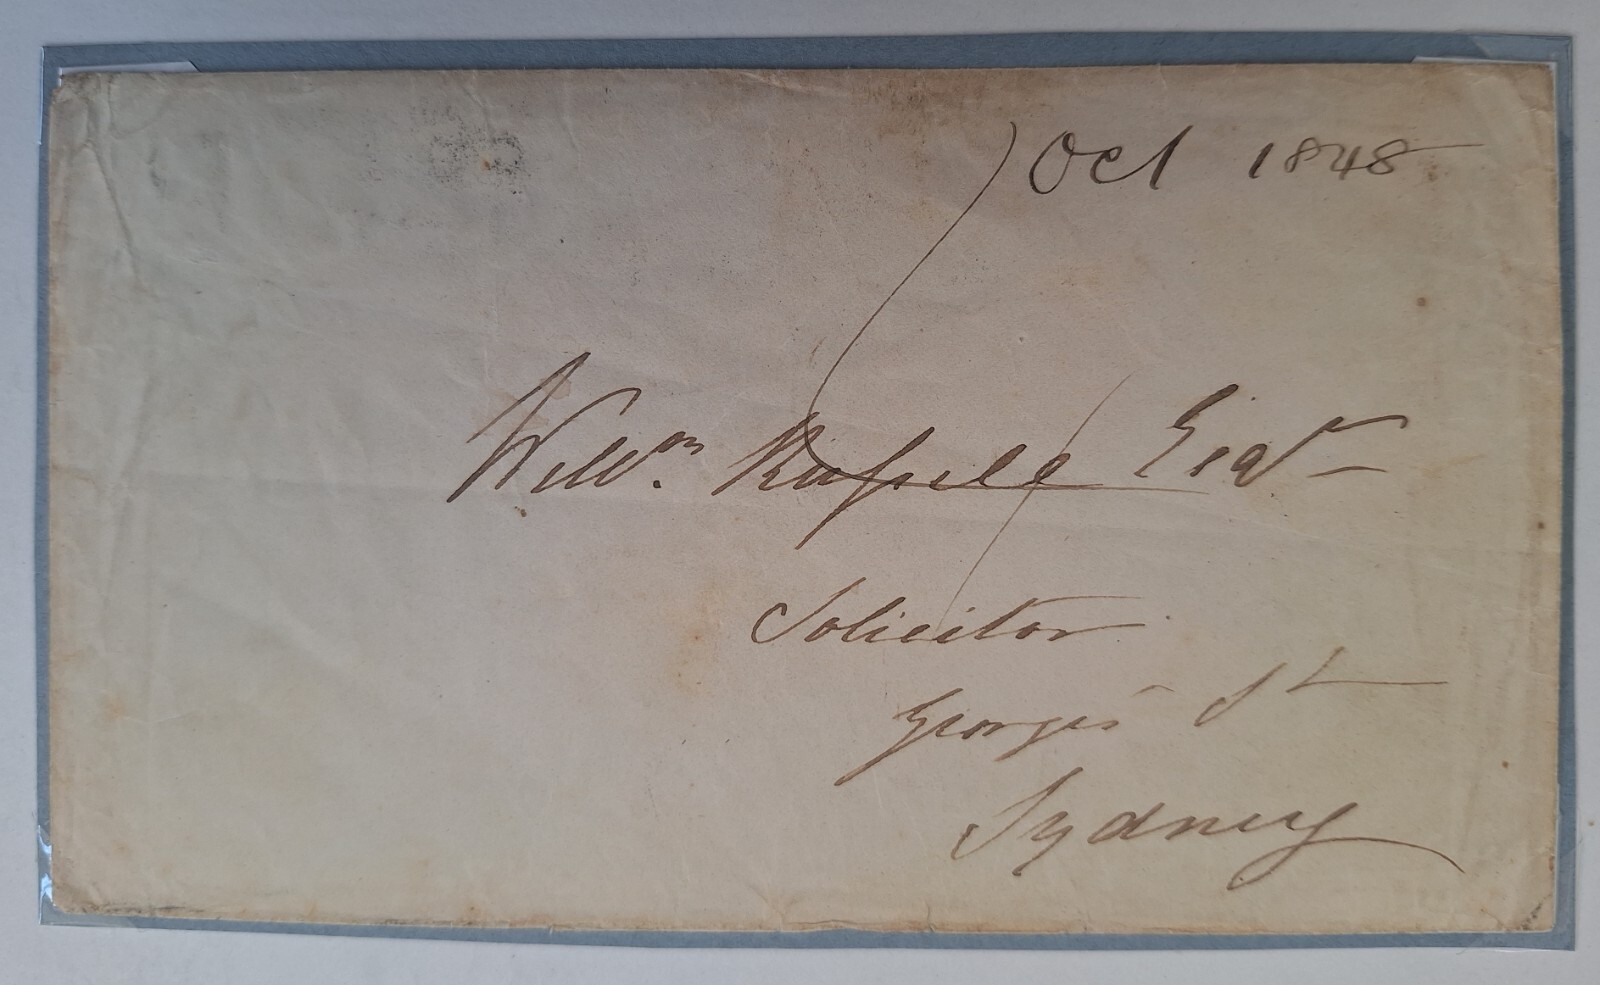 Oct 1848
Willm. Russell Esqr
Solicitor
George St
Sydney